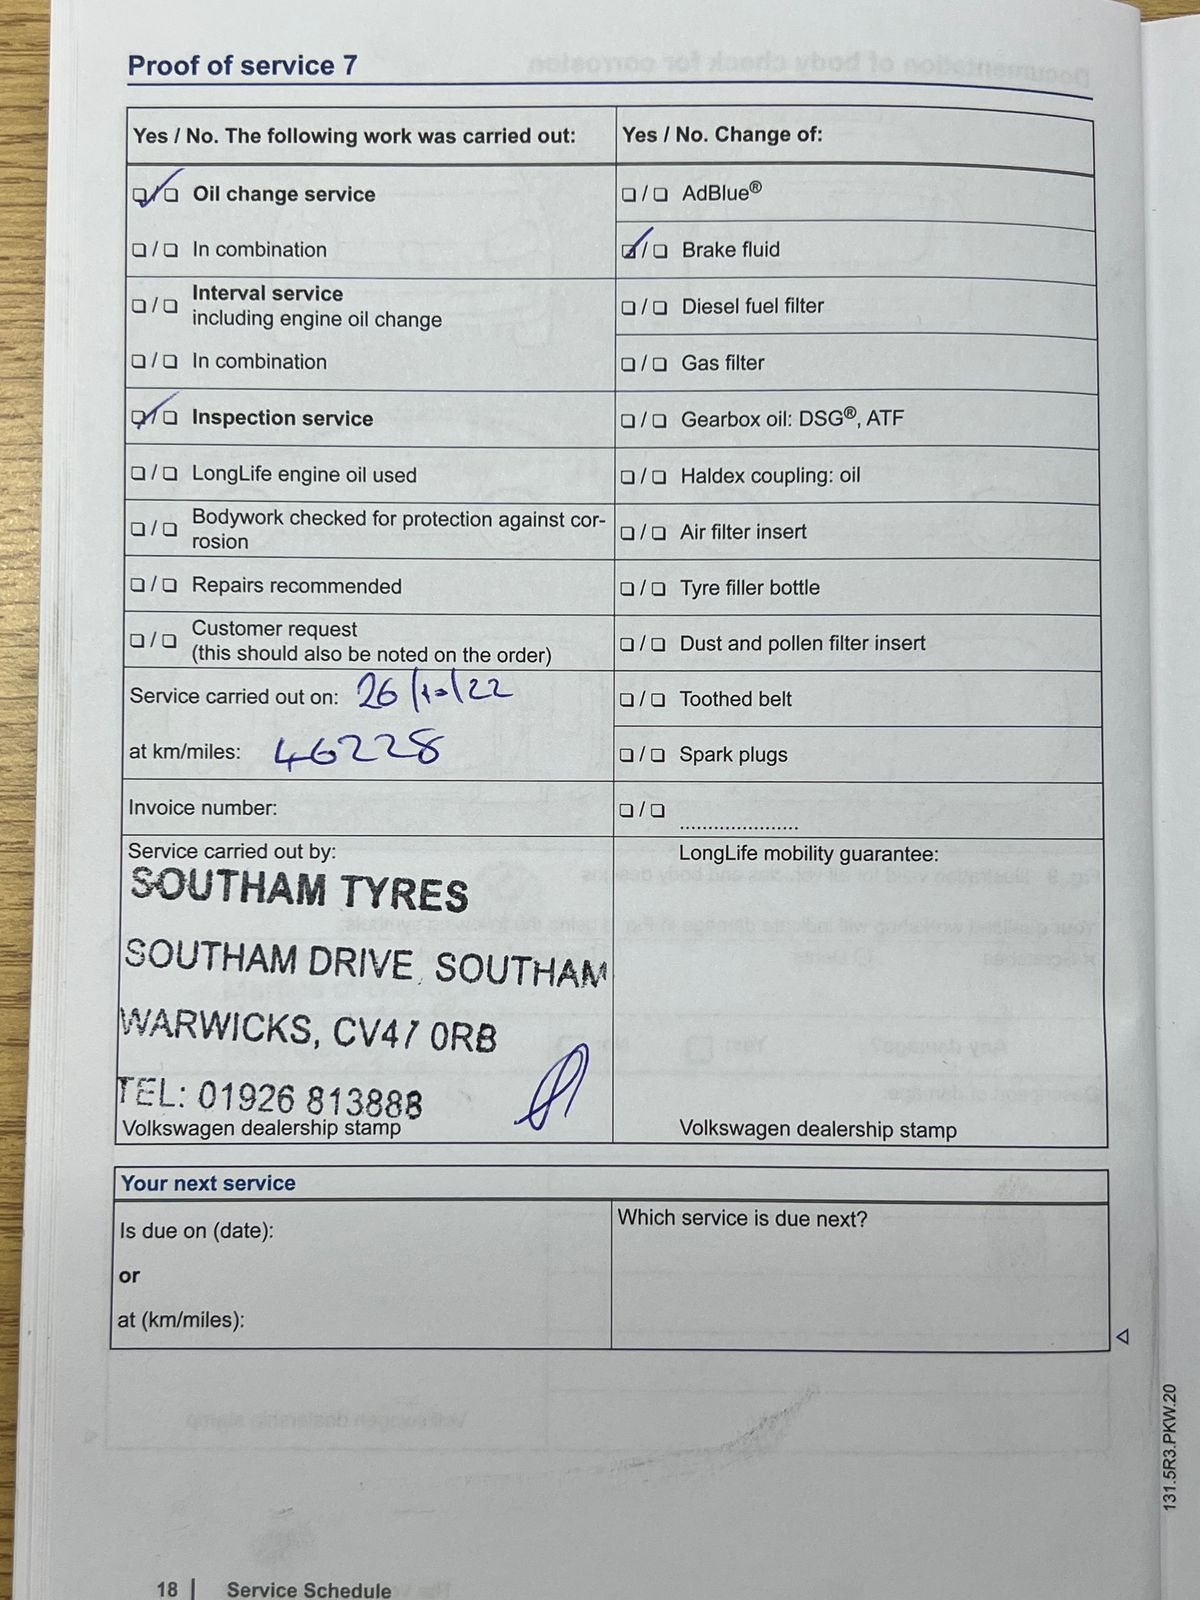 Proof of service 7
Yes / No. The following work was carried out:
☐ / ☐ Oil change service
☐ / ☐ In combination
☐ / ☐ Interval service
including engine oil change
☐ / ☐ In combination
☐ / ☐ Inspection service
☐ / ☐ LongLife engine oil used
☐ / ☐ Bodywork checked for protection against cor-
rosion
☐ / ☐ Repairs recommended
☐ / ☐ Customer request
(this should also be noted on the order)
Service carried out on: 26/10/22
at km/miles: 46228
Invoice number:
Service carried out by:
SOUTHAM TYRES
SOUTHAM DRIVE, SOUTHAM
WARWICKS, CV47 0RB
TEL: 01926 813888
Volkswagen dealership stamp
Yes / No. Change of:
☐ / ☐ AdBlue®
☐ / ☐ Brake fluid
☐ / ☐ Diesel fuel filter
☐ / ☐ Gas filter
☐ / ☐ Gearbox oil: DSG®, ATF
☐ / ☐ Haldex coupling: oil
☐ / ☐ Air filter insert
☐ / ☐ Tyre filler bottle
☐ / ☐ Dust and pollen filter insert
☐ / ☐ Toothed belt
☐ / ☐ Spark plugs
☐ / ☐ .....................
LongLife mobility guarantee:
Volkswagen dealership stamp
Your next service
Is due on (date):
or
at (km/miles):
Which service is due next?
131.5R3.PKW.20
18 | Service Schedule